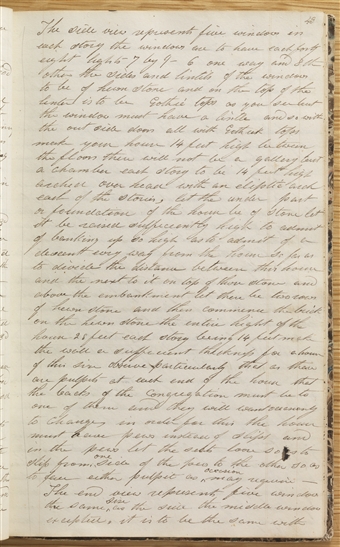 42
The side view represents five windows in
each story the windows are to have each forty
eight lights 7 by 9 - 6 one way and 8 the
other the sides and lintels of the windows
to be of hewn stone and on the top of the
linter is to be Gothic tops as you see but
the window must have a lintle and so with
the out side doors all with Gothick tops
make your house 14 feet high between
the floors there will not be a gallery but
a chamber each story to be 14 feet high
arched over head with an eliptic arch
each of the stories, let the under part
or foundation of the house be of Stone let
it be raised sufficiently high to admit
of banking up so high as to admit of a
descent evry way from the house so far as
to divide the distance between this house
and the next to it on top of the stone and
above the embankment let there be two rows
of hewn stone and then commence the brick
on the hewn stone the entire hight of the
house 28 feet each story being 14 feet make
the wall a sufficient thickness for a house
of this size observe particularly that as there
are pulpits at each end of the house that
the backs of the Congregation must be to
one of them and they will want occasionly
to change in order for this the house
must have pews instead of slips and
in the pews let the seats be loose so as to
slip from one side of the pews to the other so as
to face either pulpit as occasion may require —
The end view represents five windows
the same size as the side the middle window
excepted, it is to be the same with